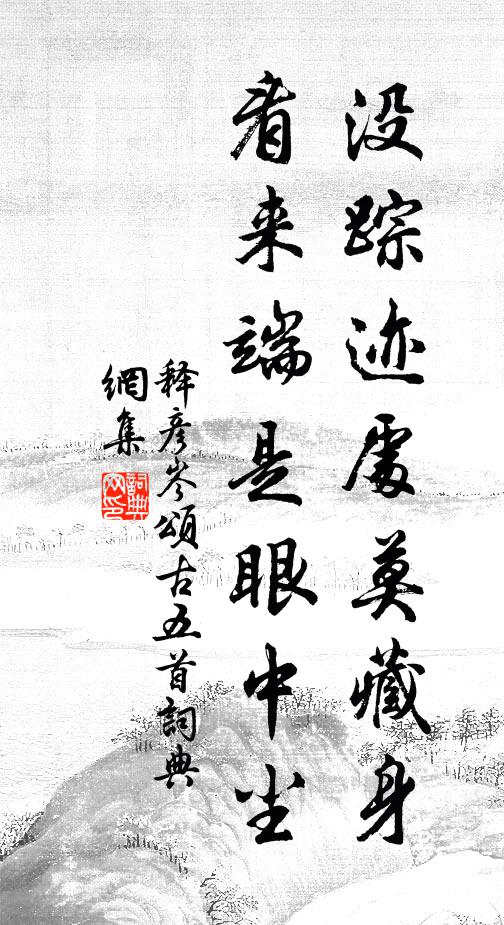 没踪迹處莫藏身
看来端是眼中尘
释彦岑頌古五首詞典
網集
詞典網印